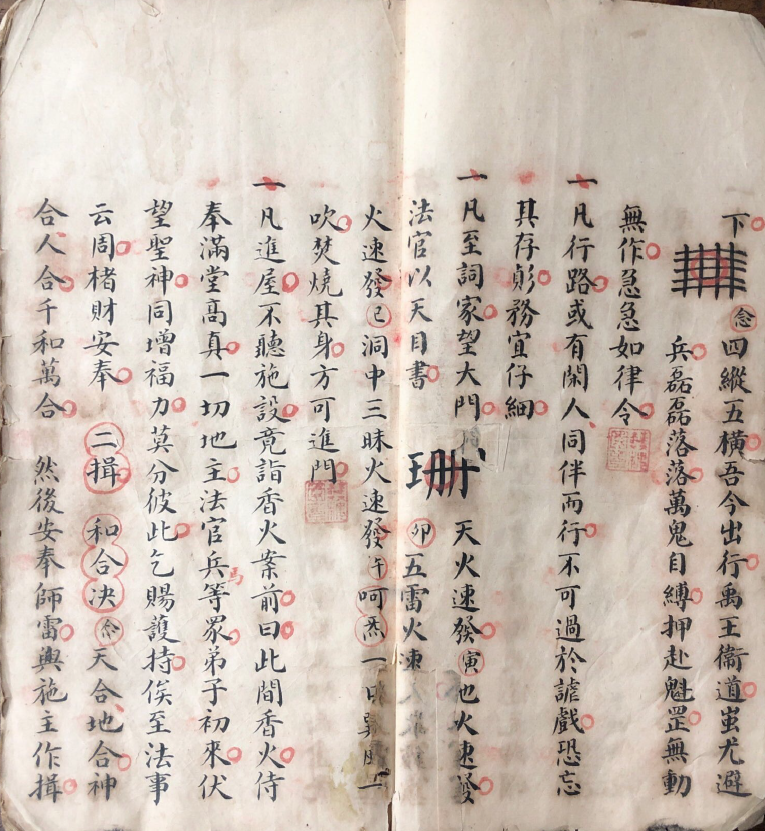 下 念 四縱五橫吾今出行禹王衛道蚩尤避
兵磊磊落落萬鬼自縛押赴魁罡無動
無作急急如律令
一凡行路或有閑人同伴而行不可過於謔戲恐忘
其存躬務宜仔細
一凡至詞家望大門 天火速發寅也火速發
法官以天目書 卯五雷火速
火速發巳洞中三昧火速發午呵炁一口 一
吹焚燒其身方可進門
一凡進屋不聽施設竟詣香火案前曰此間香火侍
奉滿堂高真一切地主法官兵馬等眾弟子初來伏
望聖神同增福力莫分彼此乞賜護持俟至法事
云周楮財安奉 二揖 和合决念天合地合神
合人合千和萬合 然後安奉師雷與施主作揖